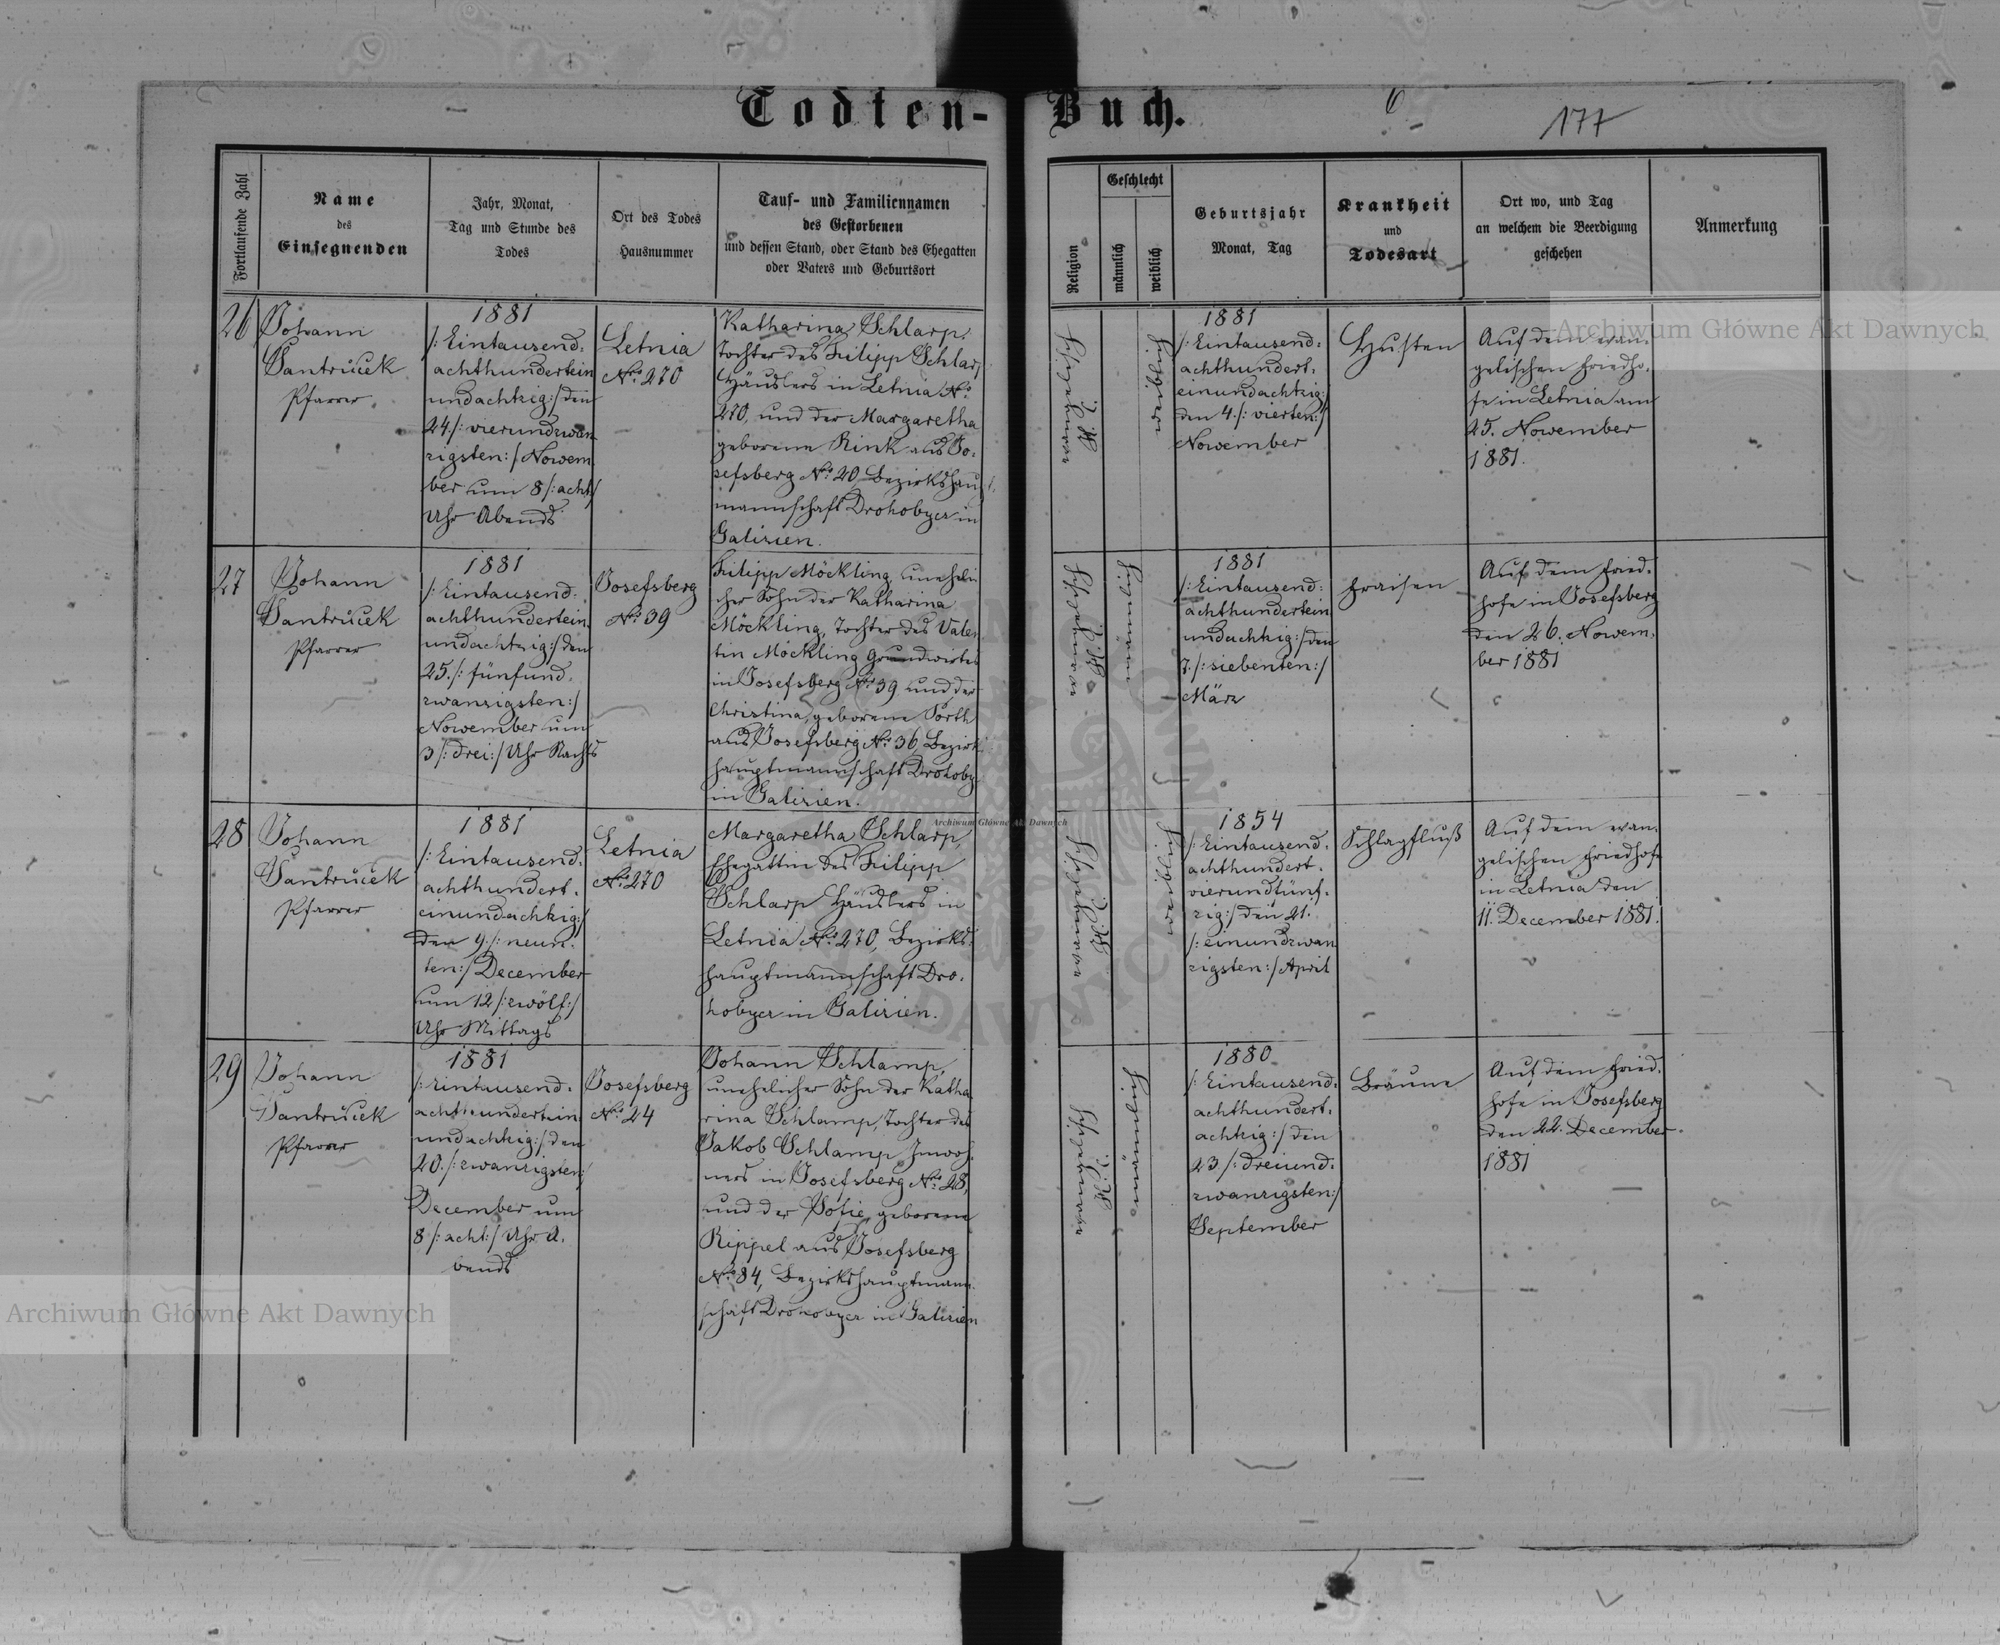 Todten-Buch.
6
177
Fortlaufende Zahl
Name
des
Einsegnenden
Jahr, Monat,
Tag und Stunde des
Todes
Ort des Todes
Hausnummer
Tauf- und Familiennamen
des Gestorbenen
und dessen Stand, oder Stand des Ehegatten
oder Vaters und Geburtsort
Religion
Geschlecht
männlich
weiblich
Geburtsjahr
Monat, Tag
Krankheit
und
Todesart
Ort wo, und Tag
an welchem die Beerdigung
geschehen
Anmerkung
26
Johann
Santrůček
Pfarrer
1881
/: Eintausend-
achthundertein
undachtzig :/ den
24. /: vierundzwan
zigsten :/ Nowem
ber um 8 /: acht :/
Uhr Abends
Letnia
No. 270
Katharina Schlarp,
Tochter des Filipp Schlarp
Häuslers in Letnia No.
270, und der Margaretha
geborene Rink aus Jo-
sefsberg No. 20, Bezirkshaupt
mannschaft Drohobycz in
Galizien.
weiblich
1881
/: Eintausend-
achthundert-
einundachtzig :/
den 4. /: vierten :/
Nowember
Husten
Auf dem evan-
gelischen Friedho-
fe in Letnia am
25. Nowember
1881.
27
Johann
Santrůček
Pfarrer
1881
/: Eintausend-
achthundertein
undachtzig :/ den
25. /: fünfund-
zwanzigsten :/
Nowember um
3 /: drei :/ Uhr Nachts
Josefsberg
No. 39
Filipp Möckling, uneheli
cher Sohn der Katharina
Möckling, Tochter des Valen
tin Möckling Grundwirtes
in Josefsberg No. 39 und der
Christina, geborene
aus Josefsberg No. 36, Bezirks
hauptmannschaft Drohobycz
in Galizien.
männlich
1881
/: Eintausend-
achthundertein
undachtzig :/ den
7. /: siebenten :/
März
Fraisen
Auf dem Fried-
hofe in Josefsberg
den 26. Nowem-
ber 1881
28
Johann
Santrůček
Pfarrer
1881
/: Eintausend-
achthundert-
einundachtzig :/
den 9. /: neun-
ten :/ December
um 12 /: zwölf :/
Uhr Mittags
Letnia
No. 270
Margaretha Schlarp
Ehegattin des Filipp
Schlarp Häuslers in
Letnia No. 270, Bezirks-
hauptmannschaft Dro-
hobycz in Galizien.
weiblich
1854
/: Eintausend-
achthundert-
vierundfünf-
zig :/ den 21.
/: einundzwan
zigsten :/ April
Schlagfluß
Auf dem evan-
gelischen Friedhofe
in Letnia den
11. December 1881.
29
Johann
Santrůček
Pfarrer
1881
/: Eintausend-
achthundertein
undachtzig :/ den
20. /: zwanzigsten :/
December um
8 /: acht :/ Uhr A-
bends
Josefsberg
No. 24
Johann Schlamp,
unehelicher Sohn der Katha
rina Schlamp, Tochter des
Jakob Schlamp Inwoh-
ners in Josefsberg No. 28,
und der Sofie, geborene
Rippel aus Josefsberg
No. 84, Bezirkshauptmann-
schaft Drohobycz in Galizien
männlich
1880
/: Eintausend-
achthundert-
achtzig :/ den
23. /: dreiund-
zwanzigsten :/
September
Bräune
Auf dem Fried-
hofe in Josefsberg
den 22. December
1881
Archiwum Główne Akt Dawnych
Archiwum Główne Akt Dawnych
Archiwum Główne Akt Dawnych